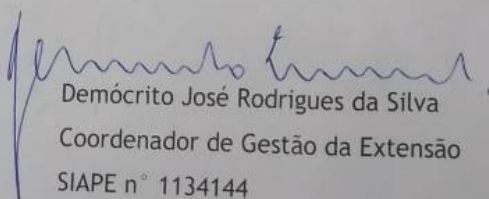 Demócrito José Rodrigues da Silva
Coordenador de Gestão da Extensão
SIAPE n° 1134144